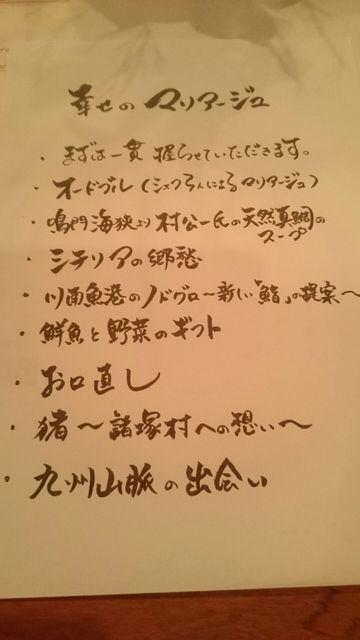 幸せのマリアージュ
・まずは一貫 握らせていただきます。
・オードブル(シェフ3人によるマリアージュ)
・鳴門海狭より 村公一氏の天然真鯛の
スープ
・シチリアの郷愁
・川南魚港のノドグロ〜新しい「鮨」の提案〜
・鮮魚と野菜のギフト
・お口直し
・猪〜諸塚村への想い〜
・九州山脈の出会い